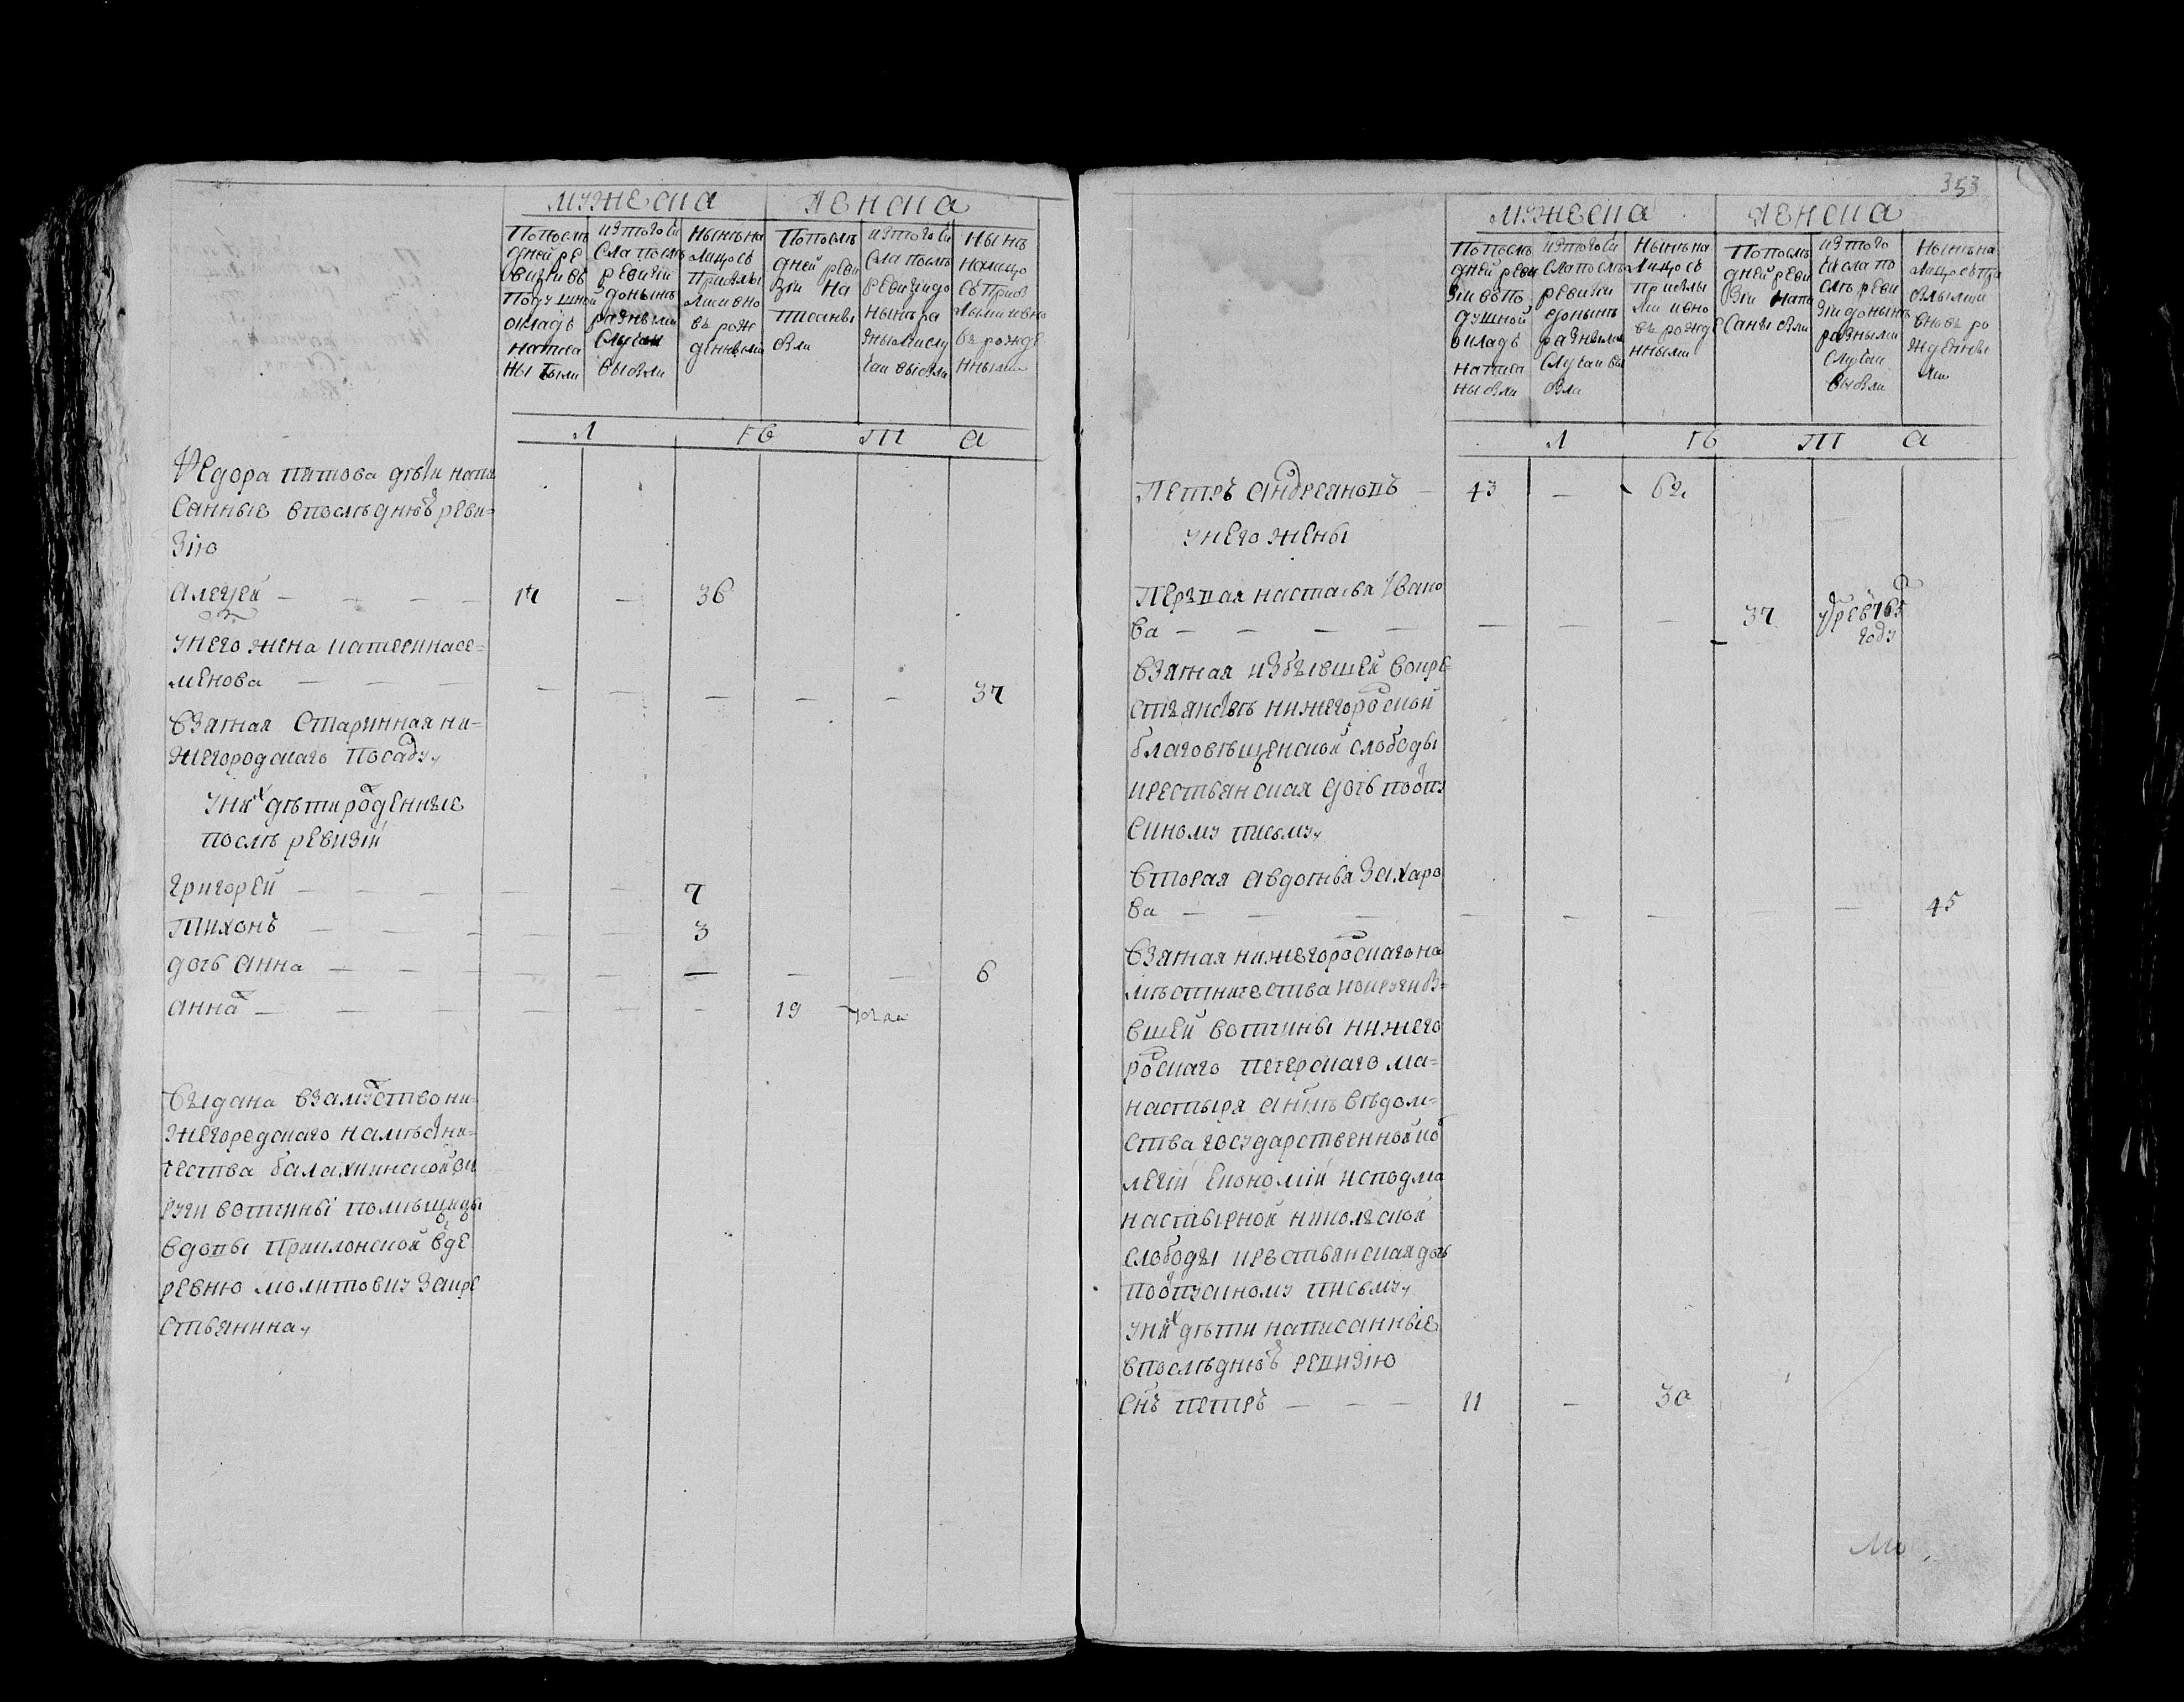 мужеска женска
По послѣ
дней ре
визіи въ
подушной
окладъ
написа
ны были
изъ того чи
сла послѣ
ревизіи
донынѣ
разными
случаи
выбыли
нынѣ на
лицо съ
прибылы
ми и вно
въ рож
денными
По послѣ
дней реви
зіи на
писаны
были
изъ того чи
сла послѣ
ревизіи до
нынѣ ра
зными слу
чаи выбыли
нынѣ
налицо
съ приб
ылыми и вно
въ рожде
нными
л ѣ т а
Федора титова дѣти напи
санные впослѣднюю реви=
зію
алексей — — — 17 — 36
у него жена катерина се=
менова — — — — — — — — 37
взятая старинная ни=
жегородскаго посаду,
у них дѣти рожденные
послѣ ревизіи
григорей — — — — — 7
тихонъ — — — — — 3
дочь анна — — — — — — — — 6
анна — — — — — — 19
выдана взамуство ни=
жегородскаго намѣсни=
чества балахнинской ок
руги вотчины помѣщицы
вдовы приклонской в де
ревню молитовку за кре
стьянина,
353
мужеска женска
По послѣ
дней реви
зіи въ по
душной
окладъ
написа
ны были
изъ того чи
сла послѣ
ревизіи
донынѣ
разными
случаи вы
были
нынѣ на
лицо съ
прибылы
ми и вно
въ рожде
нными
По послѣ
дней реви
зіи напи
саны были
изъ того
числа по
слѣ реви
зіи донынѣ
разными
случаи
выбыли
нынѣ на
лицо съ при
былыми
вновь ро
жденны
ми
л ѣ т а
Петръ андреяновъ — 43 — 62
у него жены
первая настасья Ивано
ва — — — — — — — 37 году
взятая избывшей во кре
стьянствѣ нижегородской
благовѣщенской слободы
крестьянская дочь по отпу
скному письму,
вторая авдотья захаро
ва — — — — — — — — 45
взятая нижегородскаго на
мѣстничества
вшей вотчины нижего
родскаго печерскаго мо=
настыря а нынѣ вѣдом=
ства государственной кол
легіи економіи ис подмо
настырной николской
слободы крестьянская дочь
по отпускному письму,
у них дѣти написанные
впослѣднюю ревизію
снъ петръ — — — 11 — 30